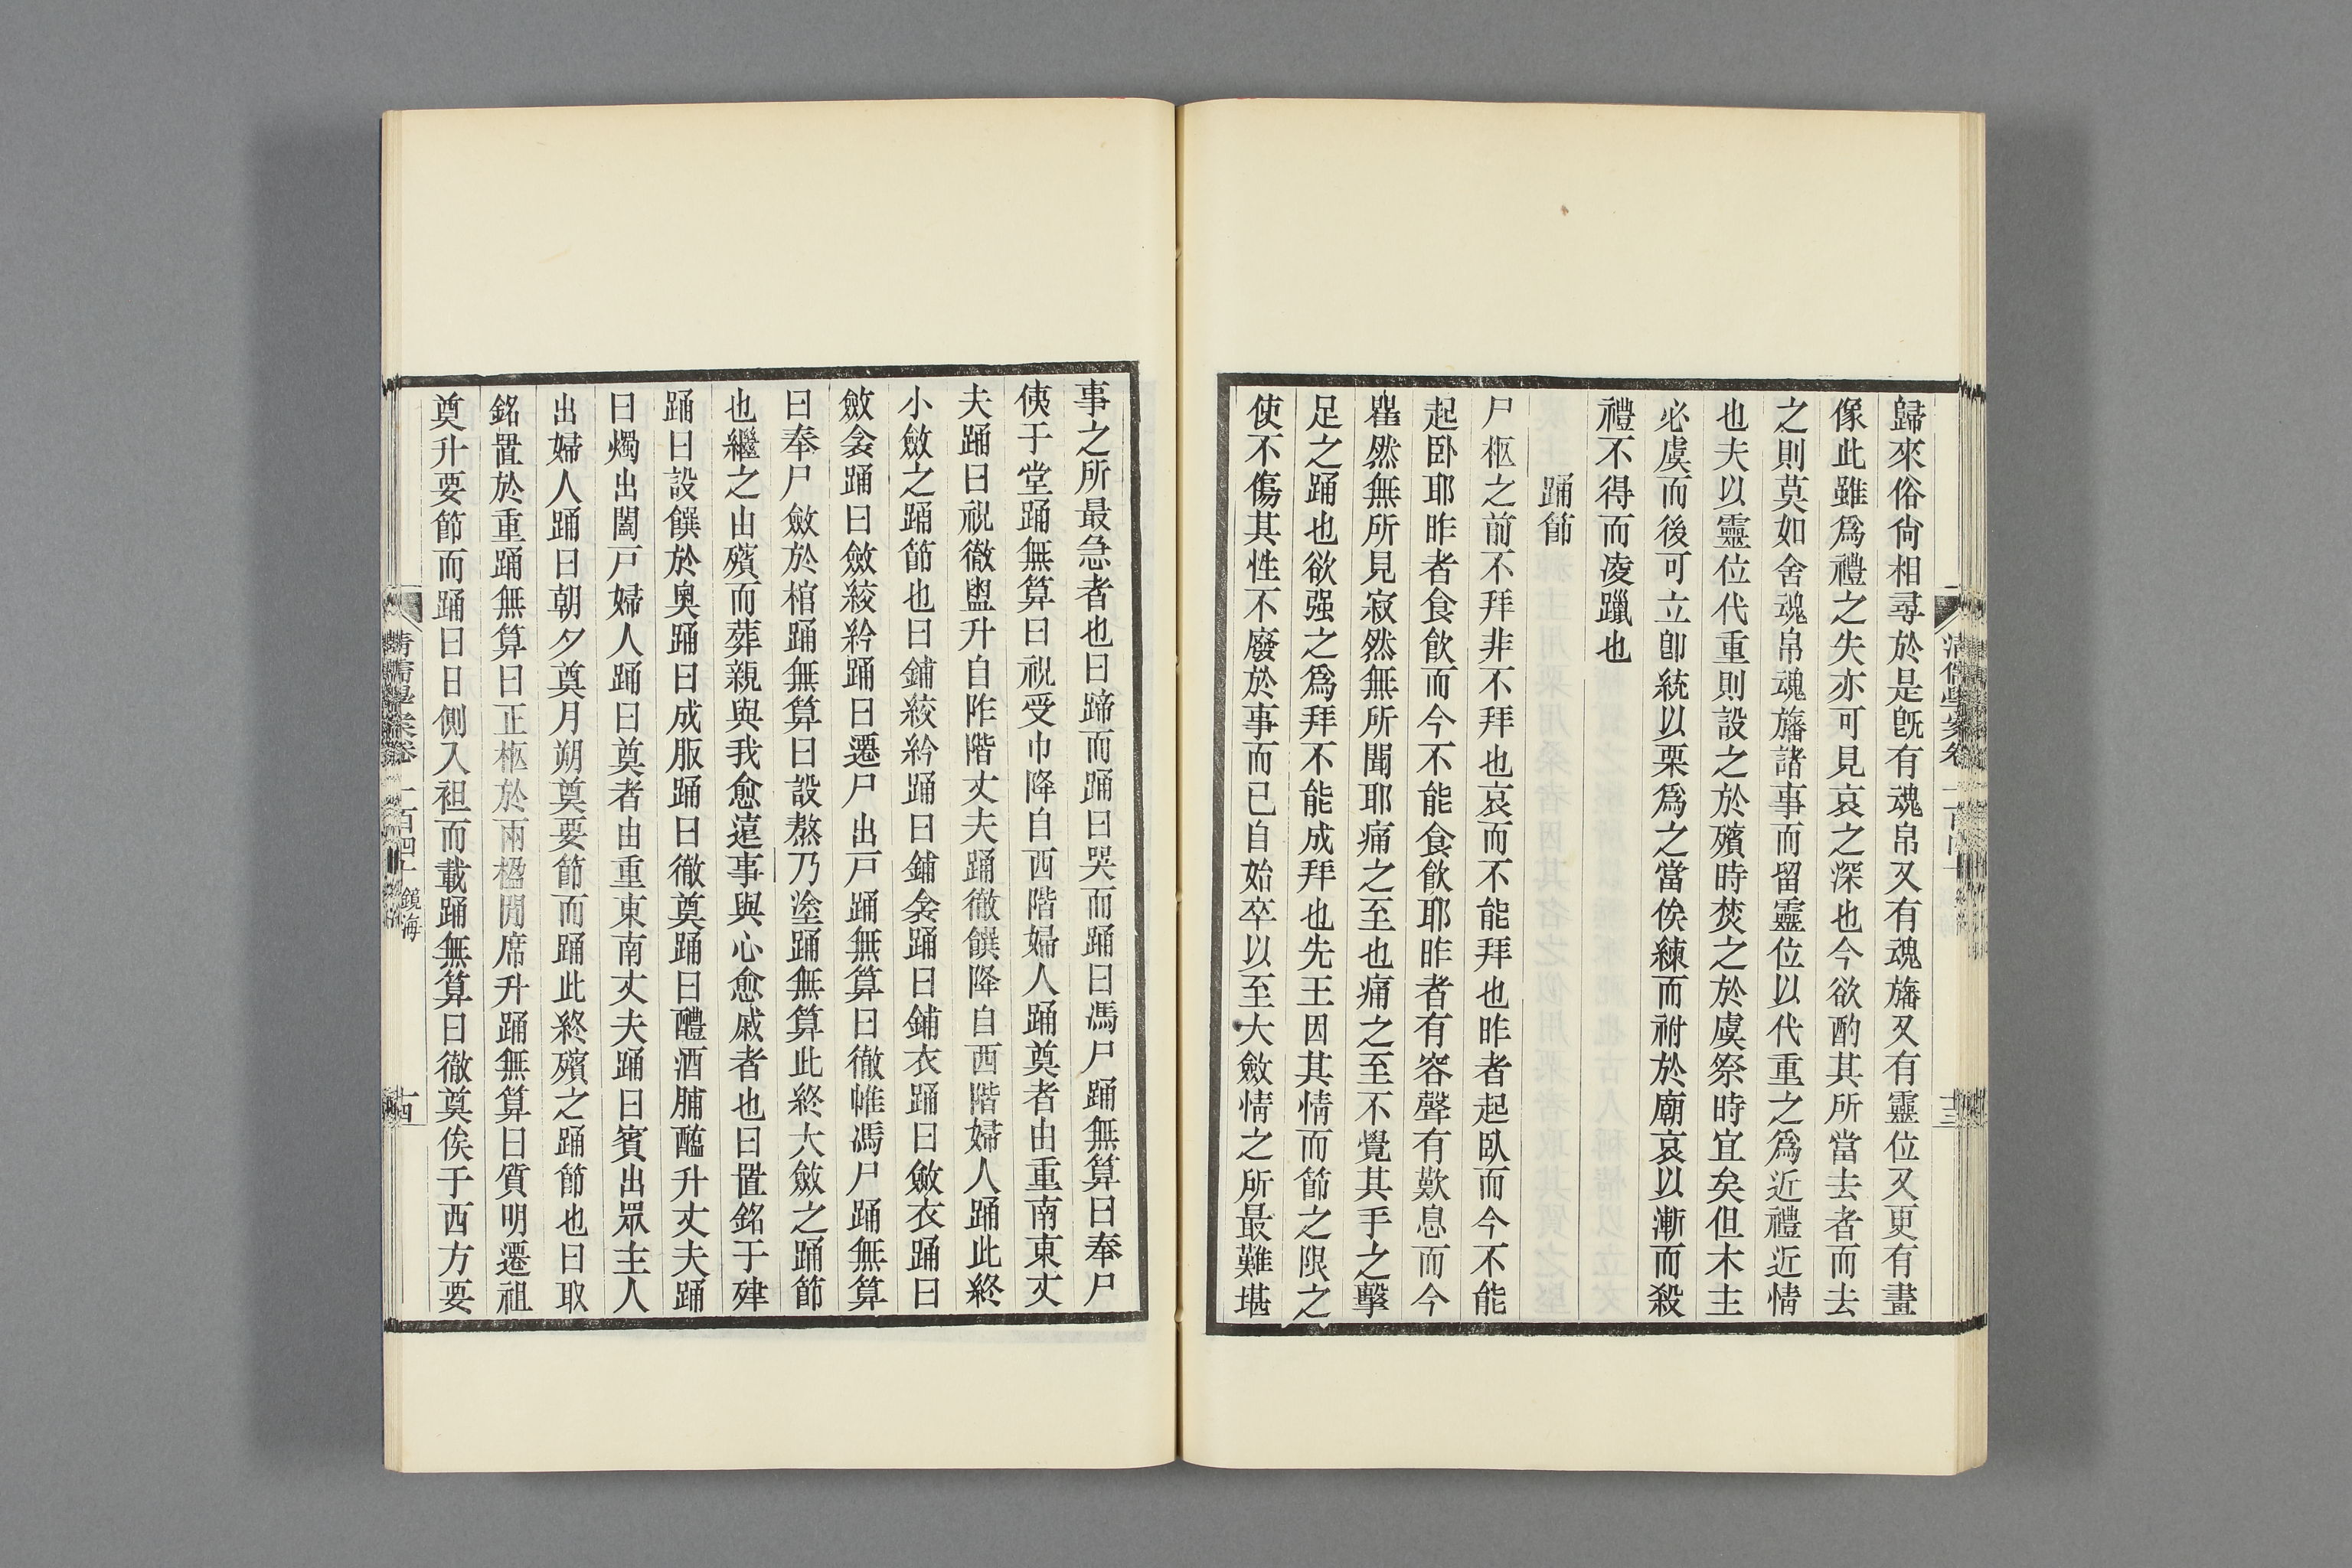 歸來俗尙相尋於是旣有魂帛又有魂旛又有靈位又更有畫
像此雖爲禮之失亦可見哀之深也今欲酌其所當去者而去
之則莫如舍魂帛魂旛諸事而留靈位以代重之爲近禮近情
也夫以靈位代重則設之於殯時焚之於虞祭時宜矣但木主
必虞而後可立卽統以栗爲之當俟練而祔於廟哀以漸而殺
禮不得而凌躐也
踊節
尸柩之前不拜非不拜也哀而不能拜也昨者起臥而今不能
起卧耶昨者食飮而今不能食飮耶昨者有容聲有歎息而今
瞿然無所見寂然無所聞耶痛之至也痛之至不覺其手之擊
足之踊也欲强之爲拜不能成拜也先王因其情而節之限之
使不傷其性不廢於事而已自始卒以至大斂情之所最難堪
事之所最急者也曰蹄而踊曰哭而踊曰馮尸踊無算曰奉尸
侇于堂踊無算曰祝受巾降自西階婦人踊奠者由重南東丈
夫踊曰祝徹盥升自阼階丈夫踊徹饌降自西階婦人踊此終
小斂之踊節也曰鋪絞紟踊曰鋪衾踊曰鋪衣踊曰斂衣踊曰
斂衾踊曰斂絞紟踊曰遷尸出戸踊無算曰徹帷馮尸踊無算
曰奉尸斂於棺踊無算曰設熬乃塗踊無算此終大斂之踊節
也繼之由殯而葬親與我愈遠事與心愈戚者也曰置銘于肂
踊曰設饌於奧踊曰成服踊曰徹奠踊曰醴酒脯醢升丈夫踊
曰燭出闔戸婦人踊曰奠者由重東南丈夫踊曰賓出眾主人
出婦人踊曰朝夕奠月朔奠要節而踊此終殯之踊節也曰取
銘置於重踊無算曰正柩於兩楹閒席升踊無算曰質明遷祖
奠升要節而踊曰日側入袒而載踊無算曰徹奠俟于西方要
清儒學案卷一百四十 鏡海
十四